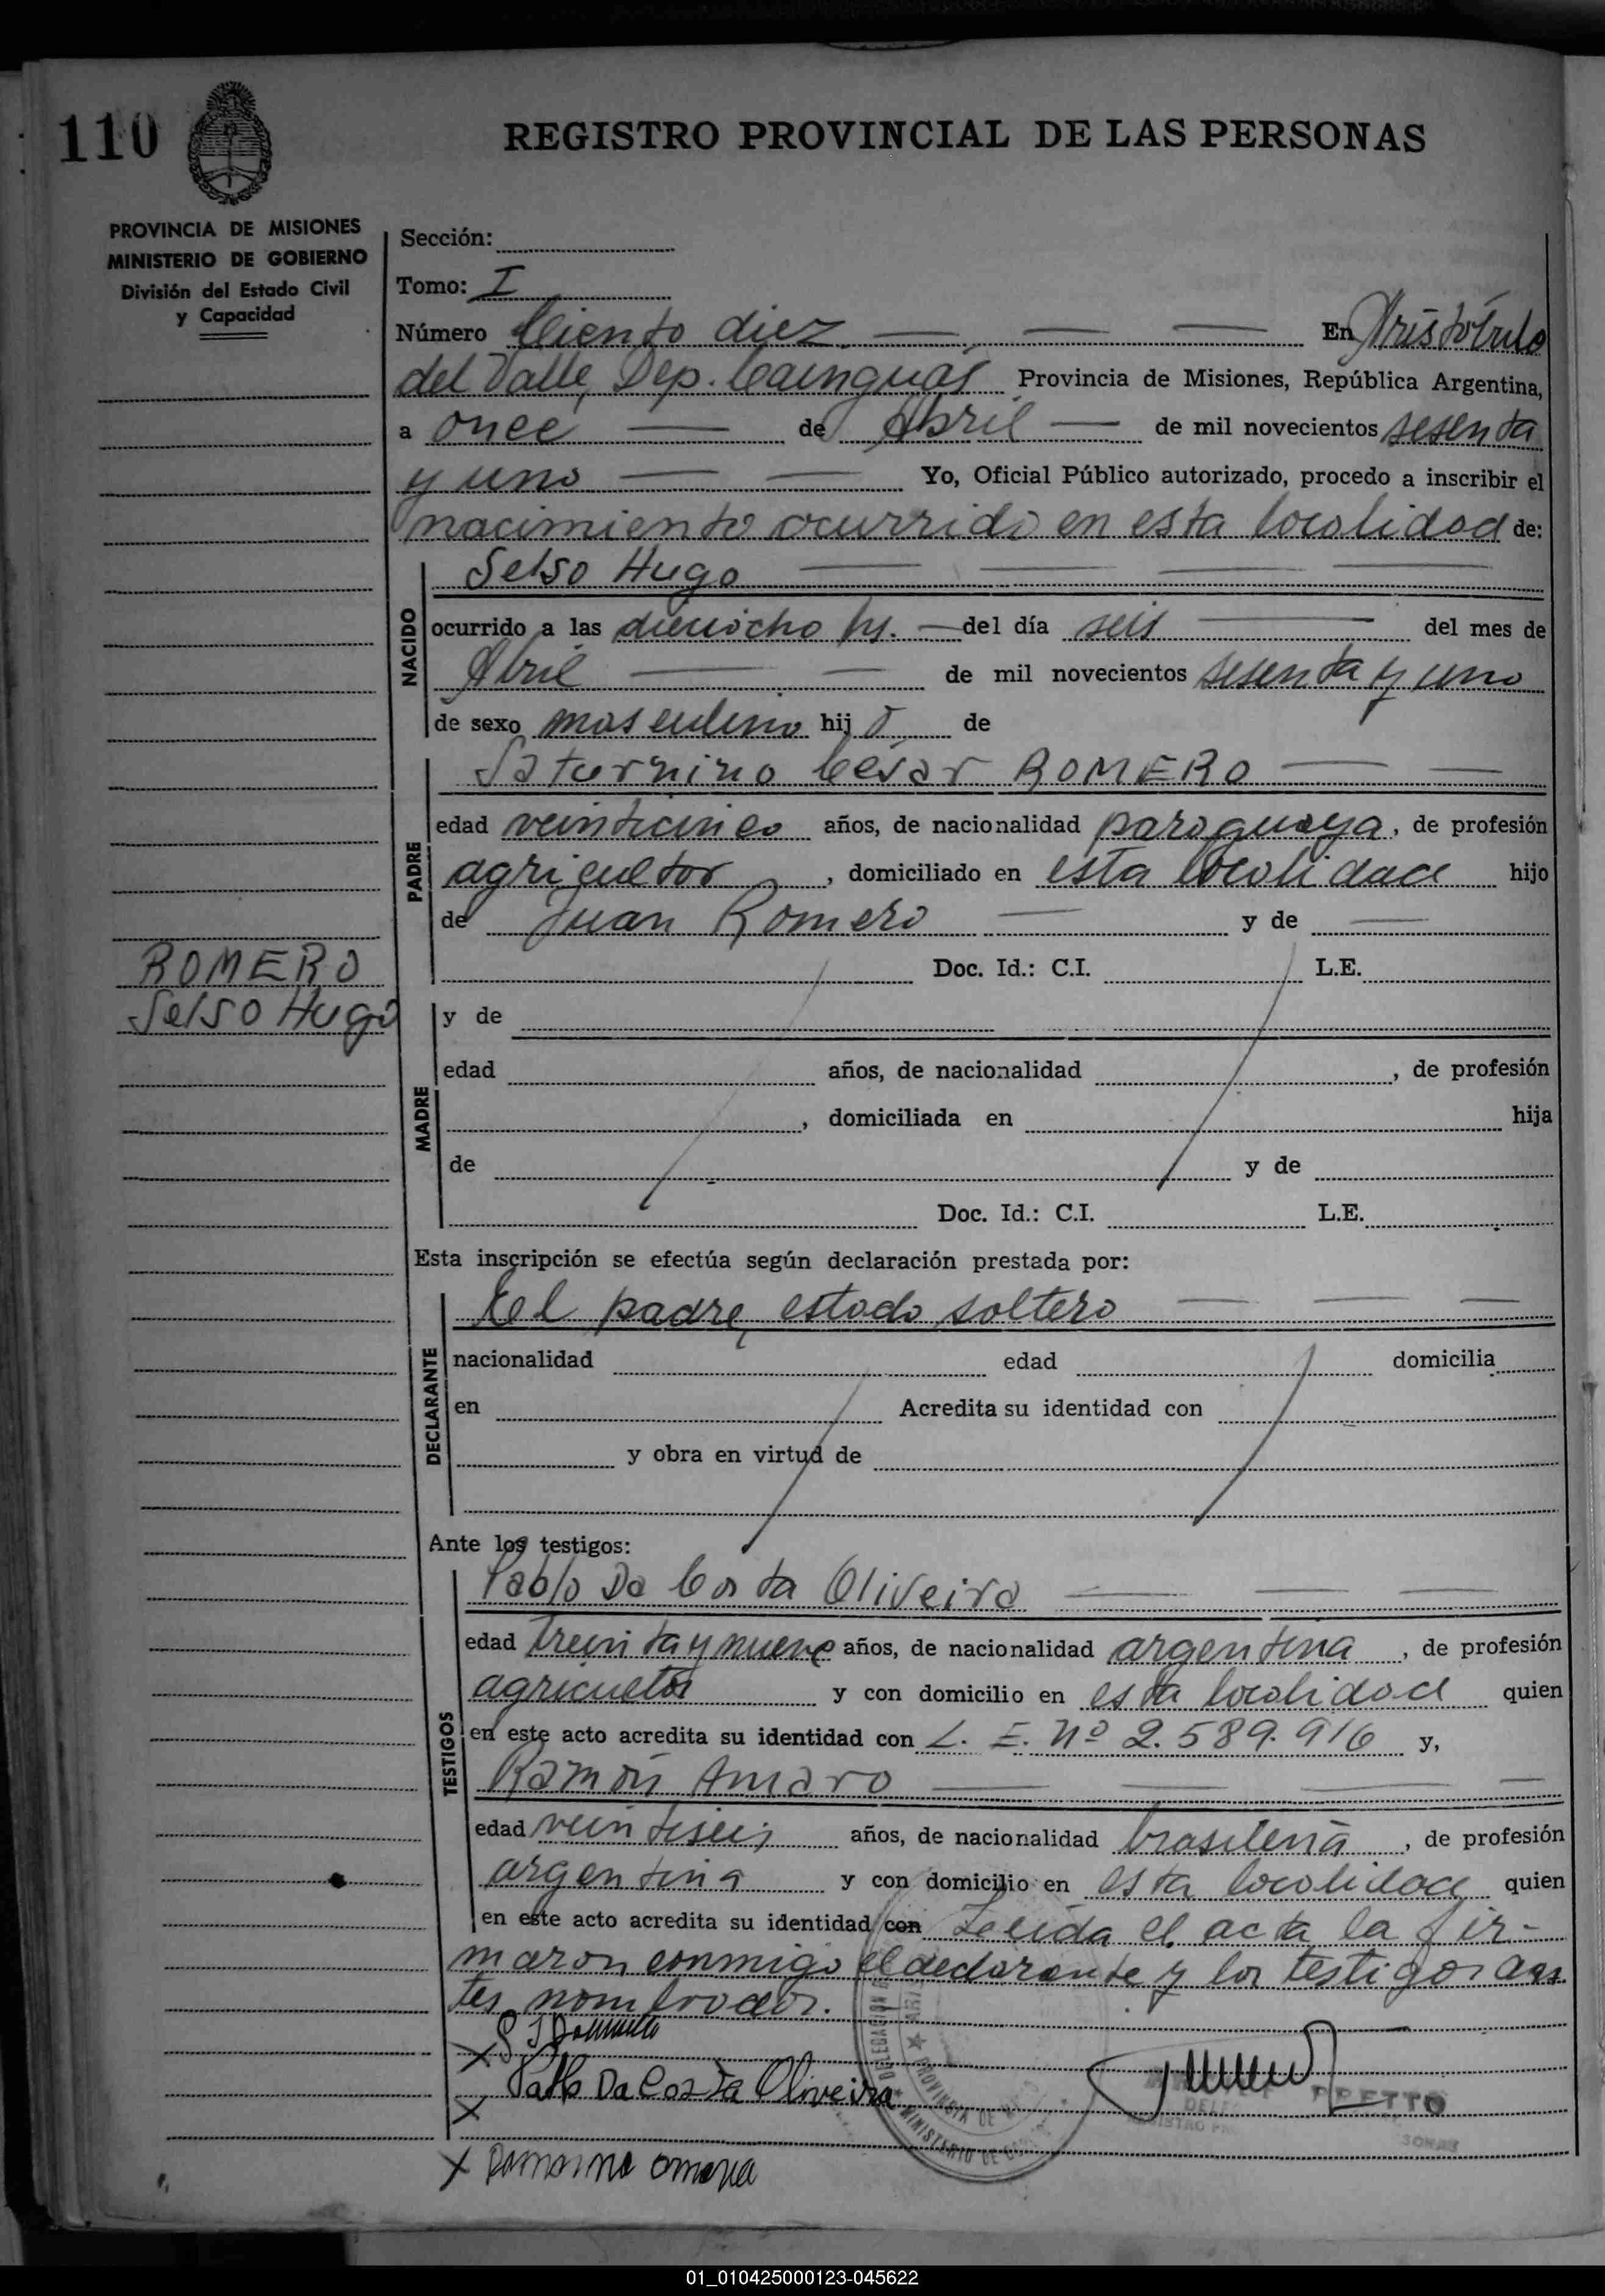 110
REGISTRO PROVINCIAL DE LAS PERSONAS
PROVINCIA DE MISIONES
MINISTERIO DE GOBIERNO
División del Estado Civil
y Capacidad
Sección:
Tomo: I
Número Ciento diez. — — — En Aristóbulo
del Valle, Dep. Cainguás Provincia de Misiones, República Argentina,
a once — de Abril — de mil novecientos sesenta
y uno — — Yo, Oficial Público autorizado, procedo a inscribir el
nacimiento ocurrido en esta localidad de:
NACIDO
Selso Hugo — — — —
ocurrido a las dieciocho hs. — del día seis — del mes de
Abril — — de mil novecientos sesenta y uno
de sexo masculino hij o de
PADRE
Saturnino César ROMERO — —
edad veinticinco años, de nacionalidad paraguaya, de profesión
agricultor , domiciliado en esta localidad hijo
de Juan Romero — y de —
Doc. Id.: C.I. L.E.
ROMERO
Selso Hugo
MADRE
y de
edad años, de nacionalidad , de profesión
, domiciliada en hija
de y de
Doc. Id.: C.I. L.E.
Esta inscripción se efectúa según declaración prestada por:
DECLARANTE
El padre, estado soltero — — —
nacionalidad edad domicilia
en Acredita su identidad con
y obra en virtud de
Ante los testigos:
TESTIGOS
Pablo Da Costa Oliveira — — —
edad treinta y nueve años, de nacionalidad argentina , de profesión
agricultor y con domicilio en esta localidad quien
en este acto acredita su identidad con L. E. Nº 2.589.916 y,
Ramón Amaro — — — —
edad veintiseis años, de nacionalidad brasileña , de profesión
argentina y con domicilio en esta localidad quien
en este acto acredita su identidad con Leída el acta la fir-
maron conmigo el declarante y los testigos an
tes nombrados.
X
Pablo Da Costa Oliveira
X
PRETTO
PROVINCIA DE
MINISTERIO DE
X
01_010425000123-045622